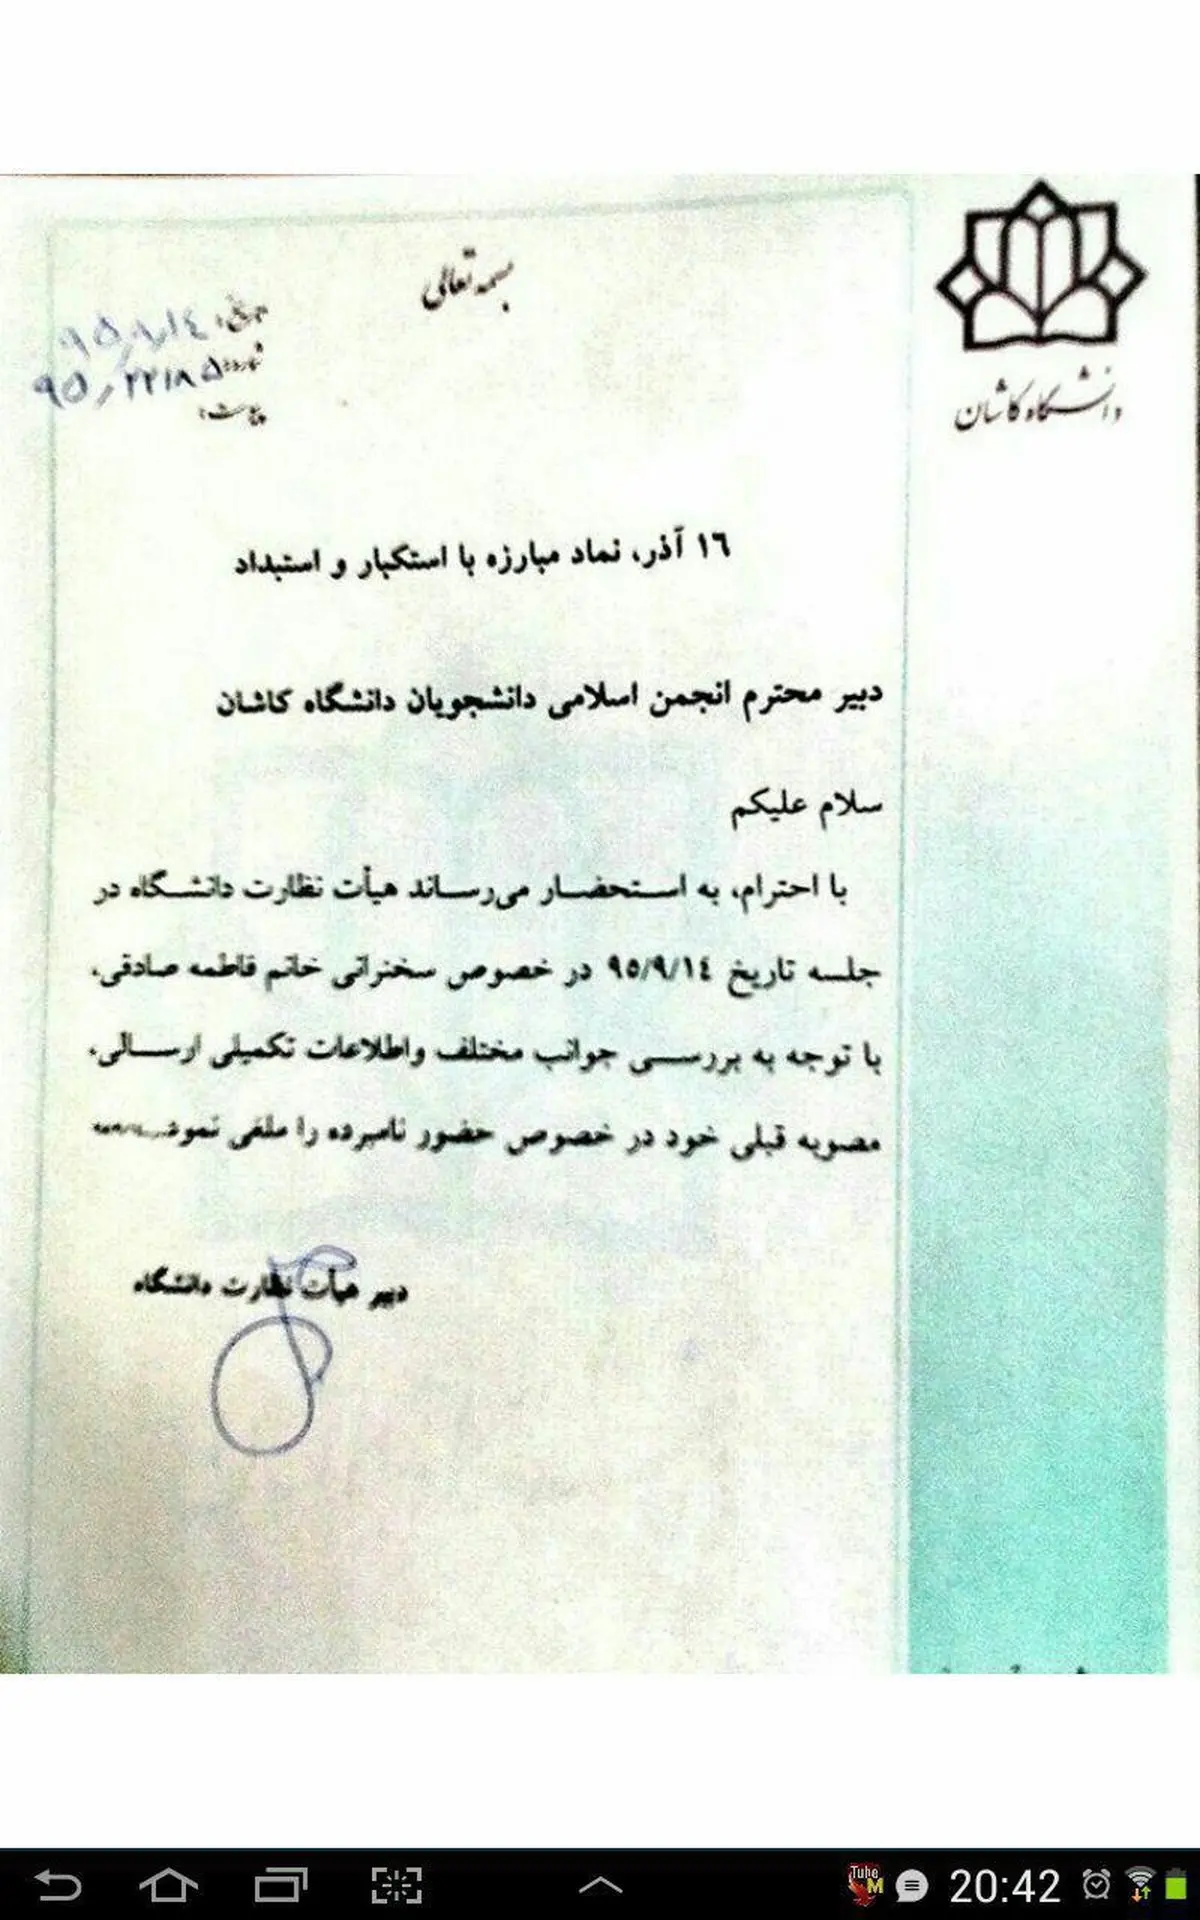 دانشگاه کاشان
بسمه تعالی
تاریخ: ۹۵/۹/۱٤
شماره: ۹۵/۲۲۱۸۵
پیوست:
۱٦ آذر، نماد مبارزه با استکبار و استبداد
دبیر محترم انجمن اسلامی دانشجویان دانشگاه کاشان
سلام علیکم
با احترام، به استحضار می‌رساند هیأت نظارت دانشگاه در
جلسه تاریخ ۹۵/۹/۱٤ در خصوص سخنرانی خانم فاطمه صادقی،
با توجه به بررسی جوانب مختلف واطلاعات تکمیلی ارسالی،
مصوبه قبلی خود در خصوص حضور نامبرده را ملغی
دبیر هیأت نظارت دانشگاه
Tube
M
20:42